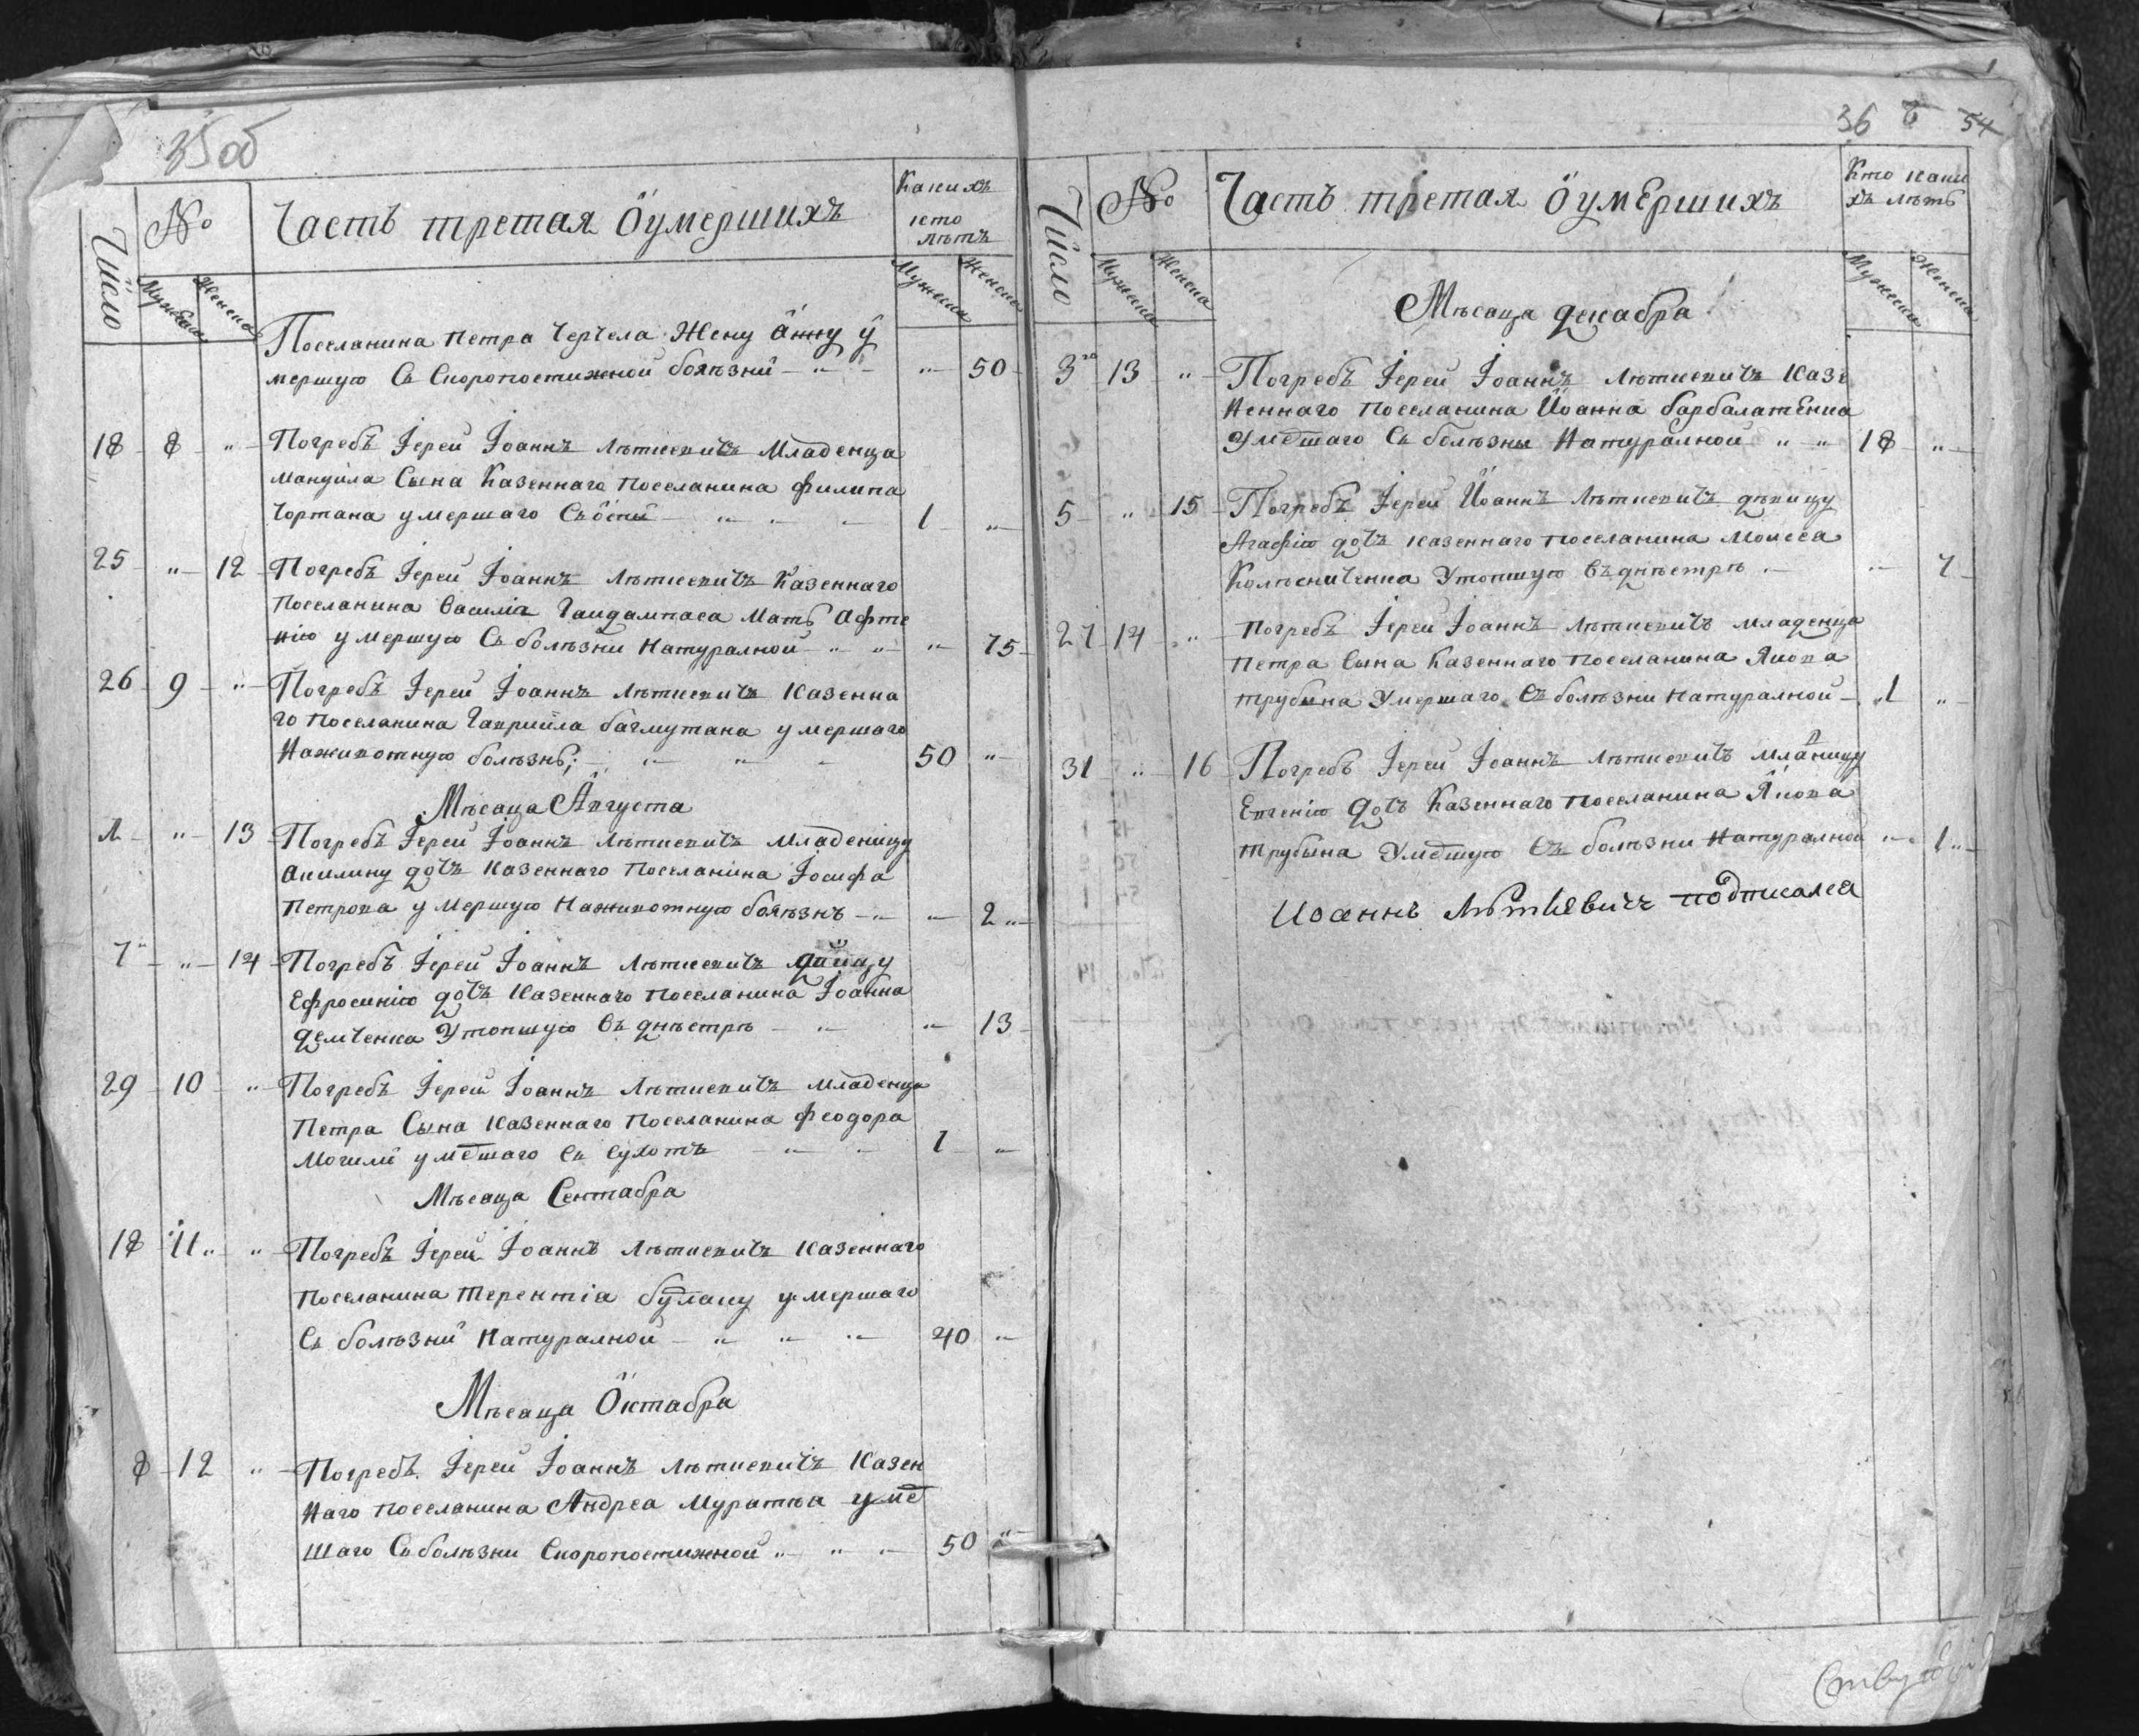 35об
Число
№
Мужеска
Женска
Часть третая о умершихъ
Какихъ
кто
лѣтъ
Мужеска
Женска
Поселанина Петра Черчела Жену Анну у
мершую Съ Скоропостижной болѣзни 50
18 8 Погребъ Іерей Іоаннъ Лѣткевичъ Младенца
Мануила Сына Казеннаго Поселанина Филипа
Чортана умершаго Съ оспи 1
25 12 Погребъ Іерей Іоаннъ Лѣткевичъ Казеннаго
Поселанина Василіа Гайдампаса Мать Афте
нію умершую Съ болѣзни Натуралной 75
26 9 Погребъ Іерей Іоаннъ Лѣткевичъ Казенна
го Поселанина Гавриила Бачмутана умершаго
Наживотную болѣзнь; 50
Мѣсаца Августа
13 Погребъ Іерей Іоаннъ Лѣткевичъ Младеницу
Акилину дочъ Казеннаго Поселанина Іосифа
Петрова умершую Наживотную болѣзнъ 2
7 14 Погребъ Іерей Іоаннъ Лѣткевичъ
Ефросинію дочъ Казеннаго Поселанина Іоанна
Демченка Утопшую Въ днѣстрѣ 13
29 10 Погребъ Іерей Іоаннъ Лѣткевичъ Младенца
Петра Сына Казеннаго Поселанина Феодора
Могили умешаго Съ Сухотъ 1
Мѣсаца Сентабра
18 11 Погребъ Іерей Іоаннъ Лѣткевичъ Казеннаго
Поселанина Терентіа Булацу умершаго
Съ болѣзни Натуралной 40
Мѣсаца Октабра
8 12 Погребъ Іерей Іоаннъ Лѣткевичъ Казен
наго Поселанина Андреа Муратва уме
шаго Съ болѣзни Скоропостижной 50
36 54
Число
№
Мужеска
Женска
Часть третая о умершихъ
Кто каки
хъ лѣтъ
Мужеска
Женска
Мѣсаца Декабра
3го 13 Погребъ Іерей Іоаннъ Лѣткевичъ Казе
ннаго Поселанина Іоанна Барбалатенка
Умешаго Съ болѣзны Натуралной 18
5 15 Погребъ Іерей Іоаннъ Лѣткевичъ дѣвицу
Агафію дочъ Казеннаго Поселанина Моисеа
Колѣсниченка Утопшую Въ днѣстрѣ 7
27 14 Погребъ Іерей Іоаннъ Лѣткевичъ младенца
Петра Сына Казеннаго Поселанина Якова
Трубына Умершаго Съ болѣзни Натуралной 1
31 16 Погребъ Іерей Іоаннъ Лѣткевичъ младницу
Евгенію Дочъ Казеннаго Поселанина Якова
Трубына Умешую Съ болѣзни Натуралной 1
Иоаннъ Лѣткѣвичъ подписалса